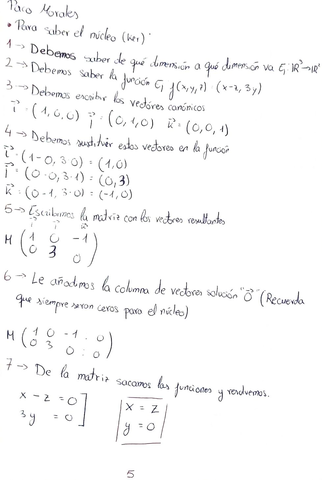 Paco Morales
• Para saber el núcleo (ker)
1 → Debemos saber de qué dimensión a qué dimensión va Ej. ℝ³→ℝ²
2 → Debemos saber la función Ej f(x,y,z) = (x-z, 3y)
3 → Debemos escribir los vectores canónicos
i = (1,0,0) j = (0,1,0) k = (0,0,1)
4 → Debemos sustituir estos vectores en la función
i = (1-0, 3·0) = (1,0)
j = (0-0, 3·1) = (0,3)
k = (0-1, 3·0) = (-1,0)
5 → Escribimos la matriz con los vectores resultantes
i j k
M ( 1 0 -1
0 3 0 )
6 → Le añadimos la columna de vectores solución "0" (Recuerda
que siempre seran ceros para el núcleo)
M ( 1 0 -1 : 0
0 3 0 : 0 )
7 → De la matriz sacamos las funciones y resolvemos.
x - z = 0 ] x = z
3y = 0 ] y = 0
5